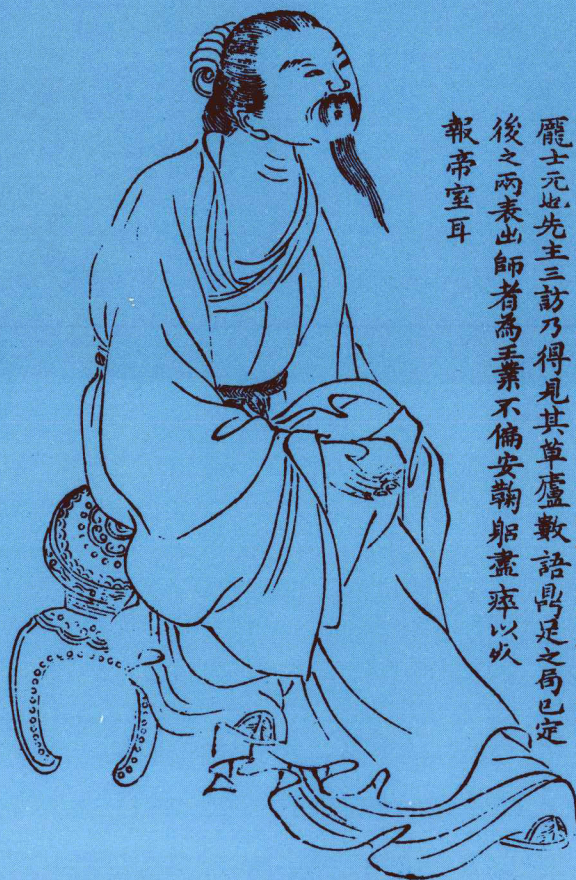 龐士元也先主三訪乃得見其草廬數語鼎足之局已定
後之兩表出師者為王業不偏安鞠躬盡瘁以㞮
報帝室耳